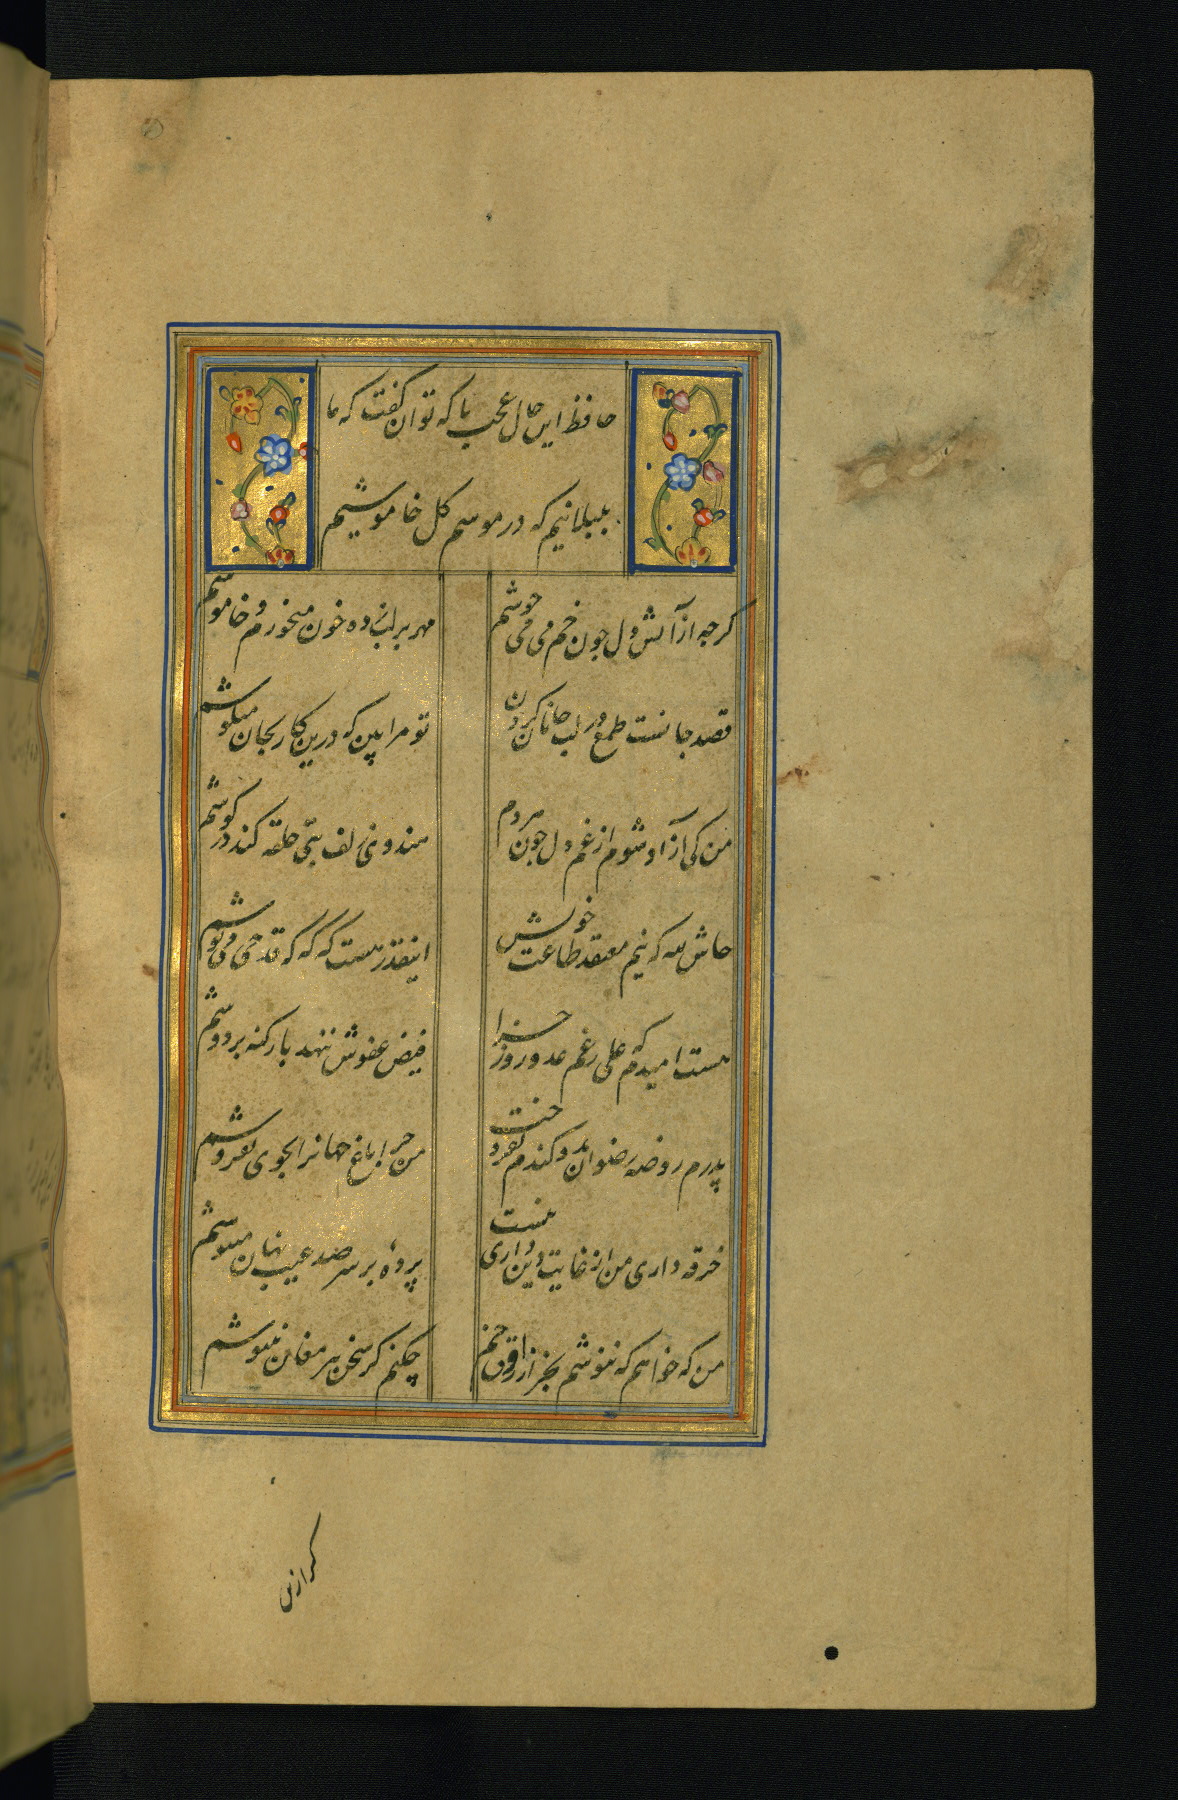 حافظ این حال عجب با که توان گفت که ما
بلبلانیم که در موسم گل خاموشیم
کرچه از آتش دل چون خم می در جوشم
مهر بر لب زده خون میخورم و خاموشم
قصد جانست طمع در لب جانان کردن
تو مرا بین که درین کار بجان میکوشم
من کی آزاد شوم از غم دل چون هر دم
هندوی زلف بتی حلقه کند در کوشم
حاش لله که نیم معتقد طاعت خویش
اینقدر هست که که که قدحی می نوشم
هست امیدم که علی رغم عدو روز جزا
فیض عفوش ننهد بار کنه بر دوشم
پدرم روضه رضوان بدو کندم بفروخت
من چرا باغ جهانرا بجوی نفروشم
خرقه داری من از غایت دین داری نیست
پرده بر سر صد عیب نهان میپوشم
من که خواهم که ننوشم بجز از راوق خم
چکنم کر سخن پیر مغان ننیوشم
کر ازین